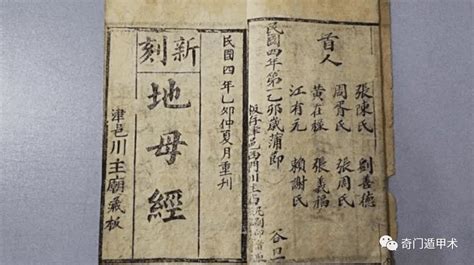 首人
張陳氏 劉善德
周胥氏 張周氏
黃在 張義福
江有元 賴謝氏
民國四年第乙卯歲蒲節
民國四年乙卯仲夏月重刊
新刻
地母經
津邑川主廟藏板
奇门遁甲术